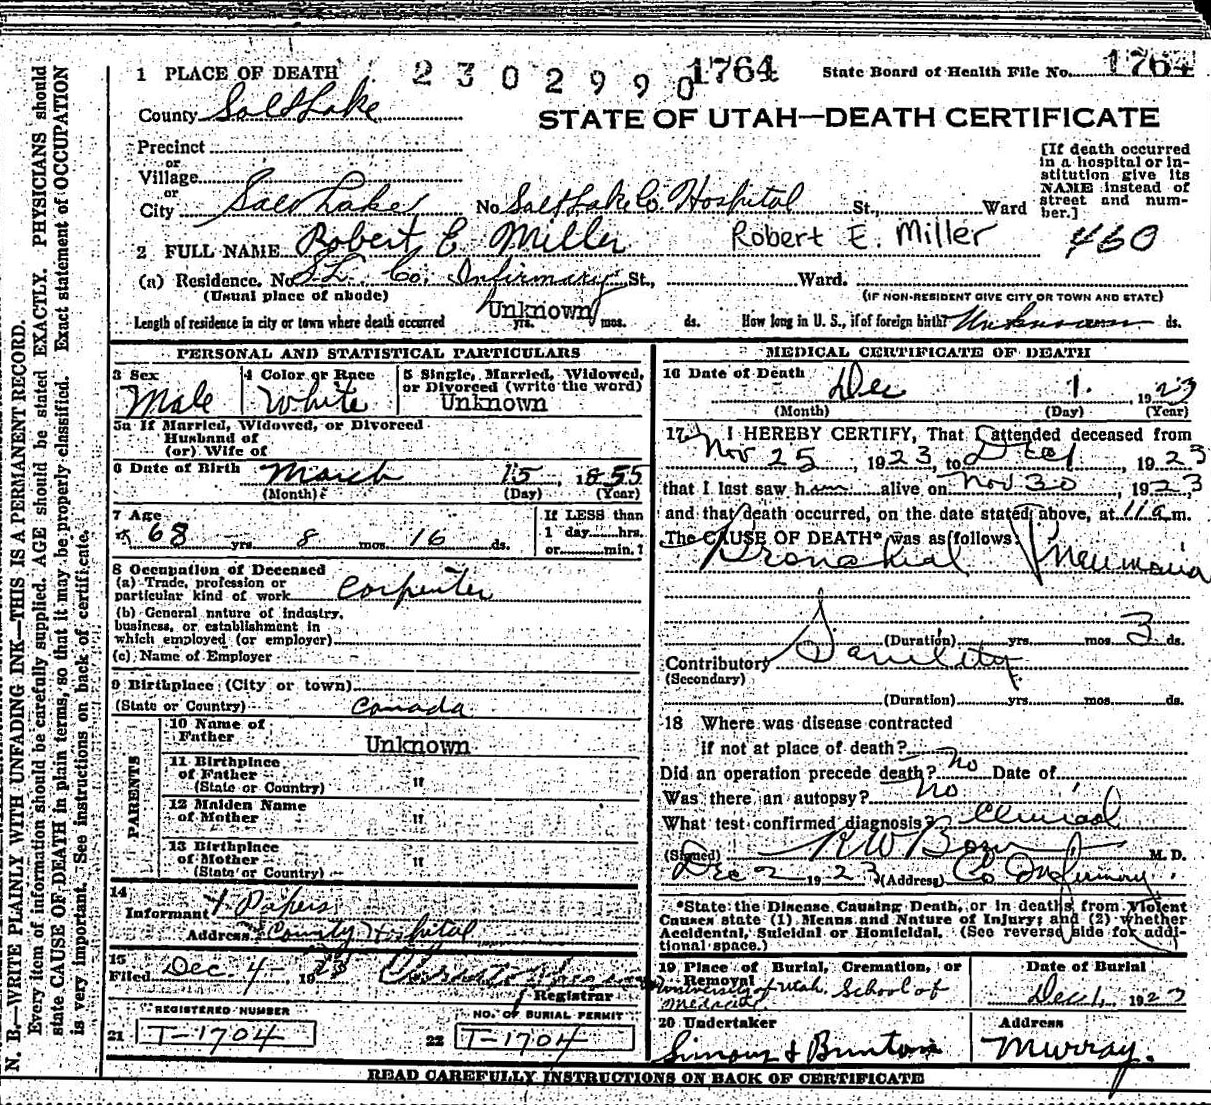 1 PLACE OF DEATH 2 3 0 2 9 9 0 1764 State Board of Health File No. 1764
County Salt Lake
STATE OF UTAH—DEATH CERTIFICATE
Precinct
or
Village
or
City Salt Lake No. Salt Lake Co. Hospital St., Ward
[If death occurred
in a hospital or in-
stitution give its
NAME instead of
street and num-
ber.]
2 FULL NAME Robert E Miller Robert E. Miller 460
(a) Residence. No. S.L. Co. Infirmary St., Ward.
(Usual place of abode) (IF NON-RESIDENT GIVE CITY OR TOWN AND STATE)
Length of residence in city or town where death occurred Unknown yrs. mos. ds. How long in U. S., if of foreign birth? Unknown ds.
PERSONAL AND STATISTICAL PARTICULARS
3 Sex Male
4 Color or Race White
5 Single, Married, Widowed,
or Divorced (write the word)
Unknown
5a If Married, Widowed, or Divorced
Husband of
(or) Wife of
6 Date of Birth March 15, 1855
(Month) (Day) (Year)
7 Age
68 yrs. 8 mos. 16 ds.
If LESS than
1 day hrs.
or min.?
8 Occupation of Deceased
(a) Trade, profession or
particular kind of work Carpenter
(b) General nature of industry,
business, or establishment in
which employed (or employer)
(c) Name of Employer
9 Birthplace (City or town)
(State or Country) Canada
PARENTS
10 Name of
Father Unknown
11 Birthplace
of Father "
(State or Country)
12 Maiden Name
of Mother "
13 Birthplace
of Mother "
(State or Country)
14
Informant Papers
Address County Hospital
15
Filed Dec. 4- 1923
Registrar
REGISTERED NUMBER
21 T-1704
NO. OF BURIAL PERMIT
22 T-1704
MEDICAL CERTIFICATE OF DEATH
16 Date of Death Dec 1. 1923
(Month) (Day) (Year)
17 I HEREBY CERTIFY, That I attended deceased from
Nov 25, 1923, to Dec 1, 1923
that I last saw him alive on Nov 30, 1923,
and that death occurred, on the date stated above, at 11 a m.
The CAUSE OF DEATH* was as follows:
Bronchial Pneumonia
(Duration) yrs. mos. 3 ds.
Contributory Senility
(Secondary)
(Duration) yrs. mos. ds.
18 Where was disease contracted
if not at place of death?
Did an operation precede death? No Date of
Was there an autopsy? No
What test confirmed diagnosis? Clinical
(Signed) R W M. D.
Dec 2 1923 (Address) Co Infirmary
*State the Disease Causing Death, or in deaths from Violent
Causes state (1) Means and Nature of Injury; and (2) whether
Accidental, Suicidal or Homicidal. (See reverse side for addi-
tional space.)
19 Place of Burial, Cremation, or
Removal
University of Utah School of
Medicine
Date of Burial
Dec 1, 1923
20 Undertaker
Simons & Brinton
Address
Murray.
READ CAREFULLY INSTRUCTIONS ON BACK OF CERTIFICATE
N. B.—WRITE PLAINLY WITH UNFADING INK—THIS IS A PERMANENT RECORD.
Every item of information should be carefully supplied. AGE should be stated EXACTLY. PHYSICIANS should
state CAUSE OF DEATH in plain terms, so that it may be properly classified. Exact statement of OCCUPATION
is very important. See instructions on back of certificate.